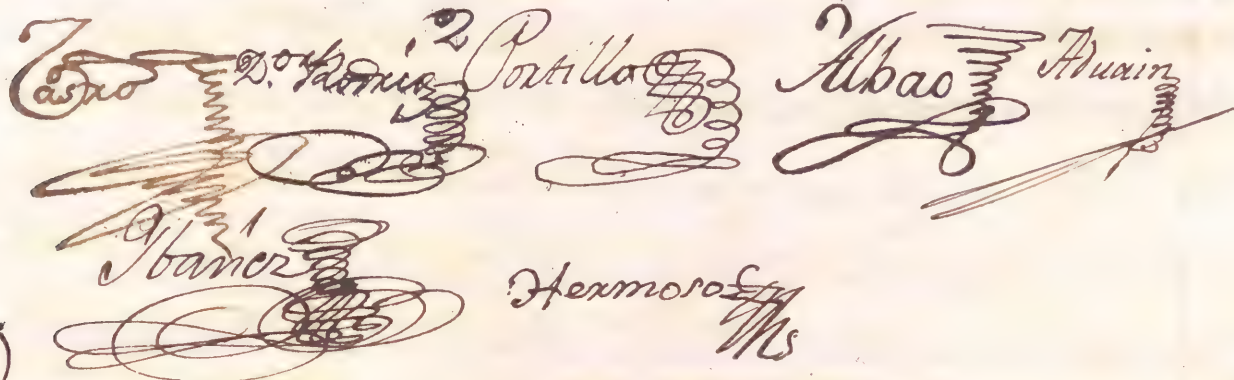 Castro D.or Portillo Albao Aduain
Ibañez Hermoso